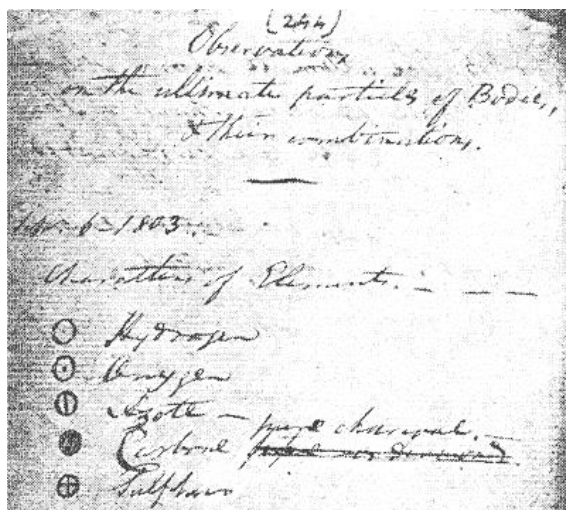 (244)
Observations
on the ultimate particles of Bodies,
& their combinations.
Sepr. 6 - 1803.
Characters of Elements. - - -
Hydrogen
Oxygen
Azote
Carbone - pure charcoal. -
Sulphur